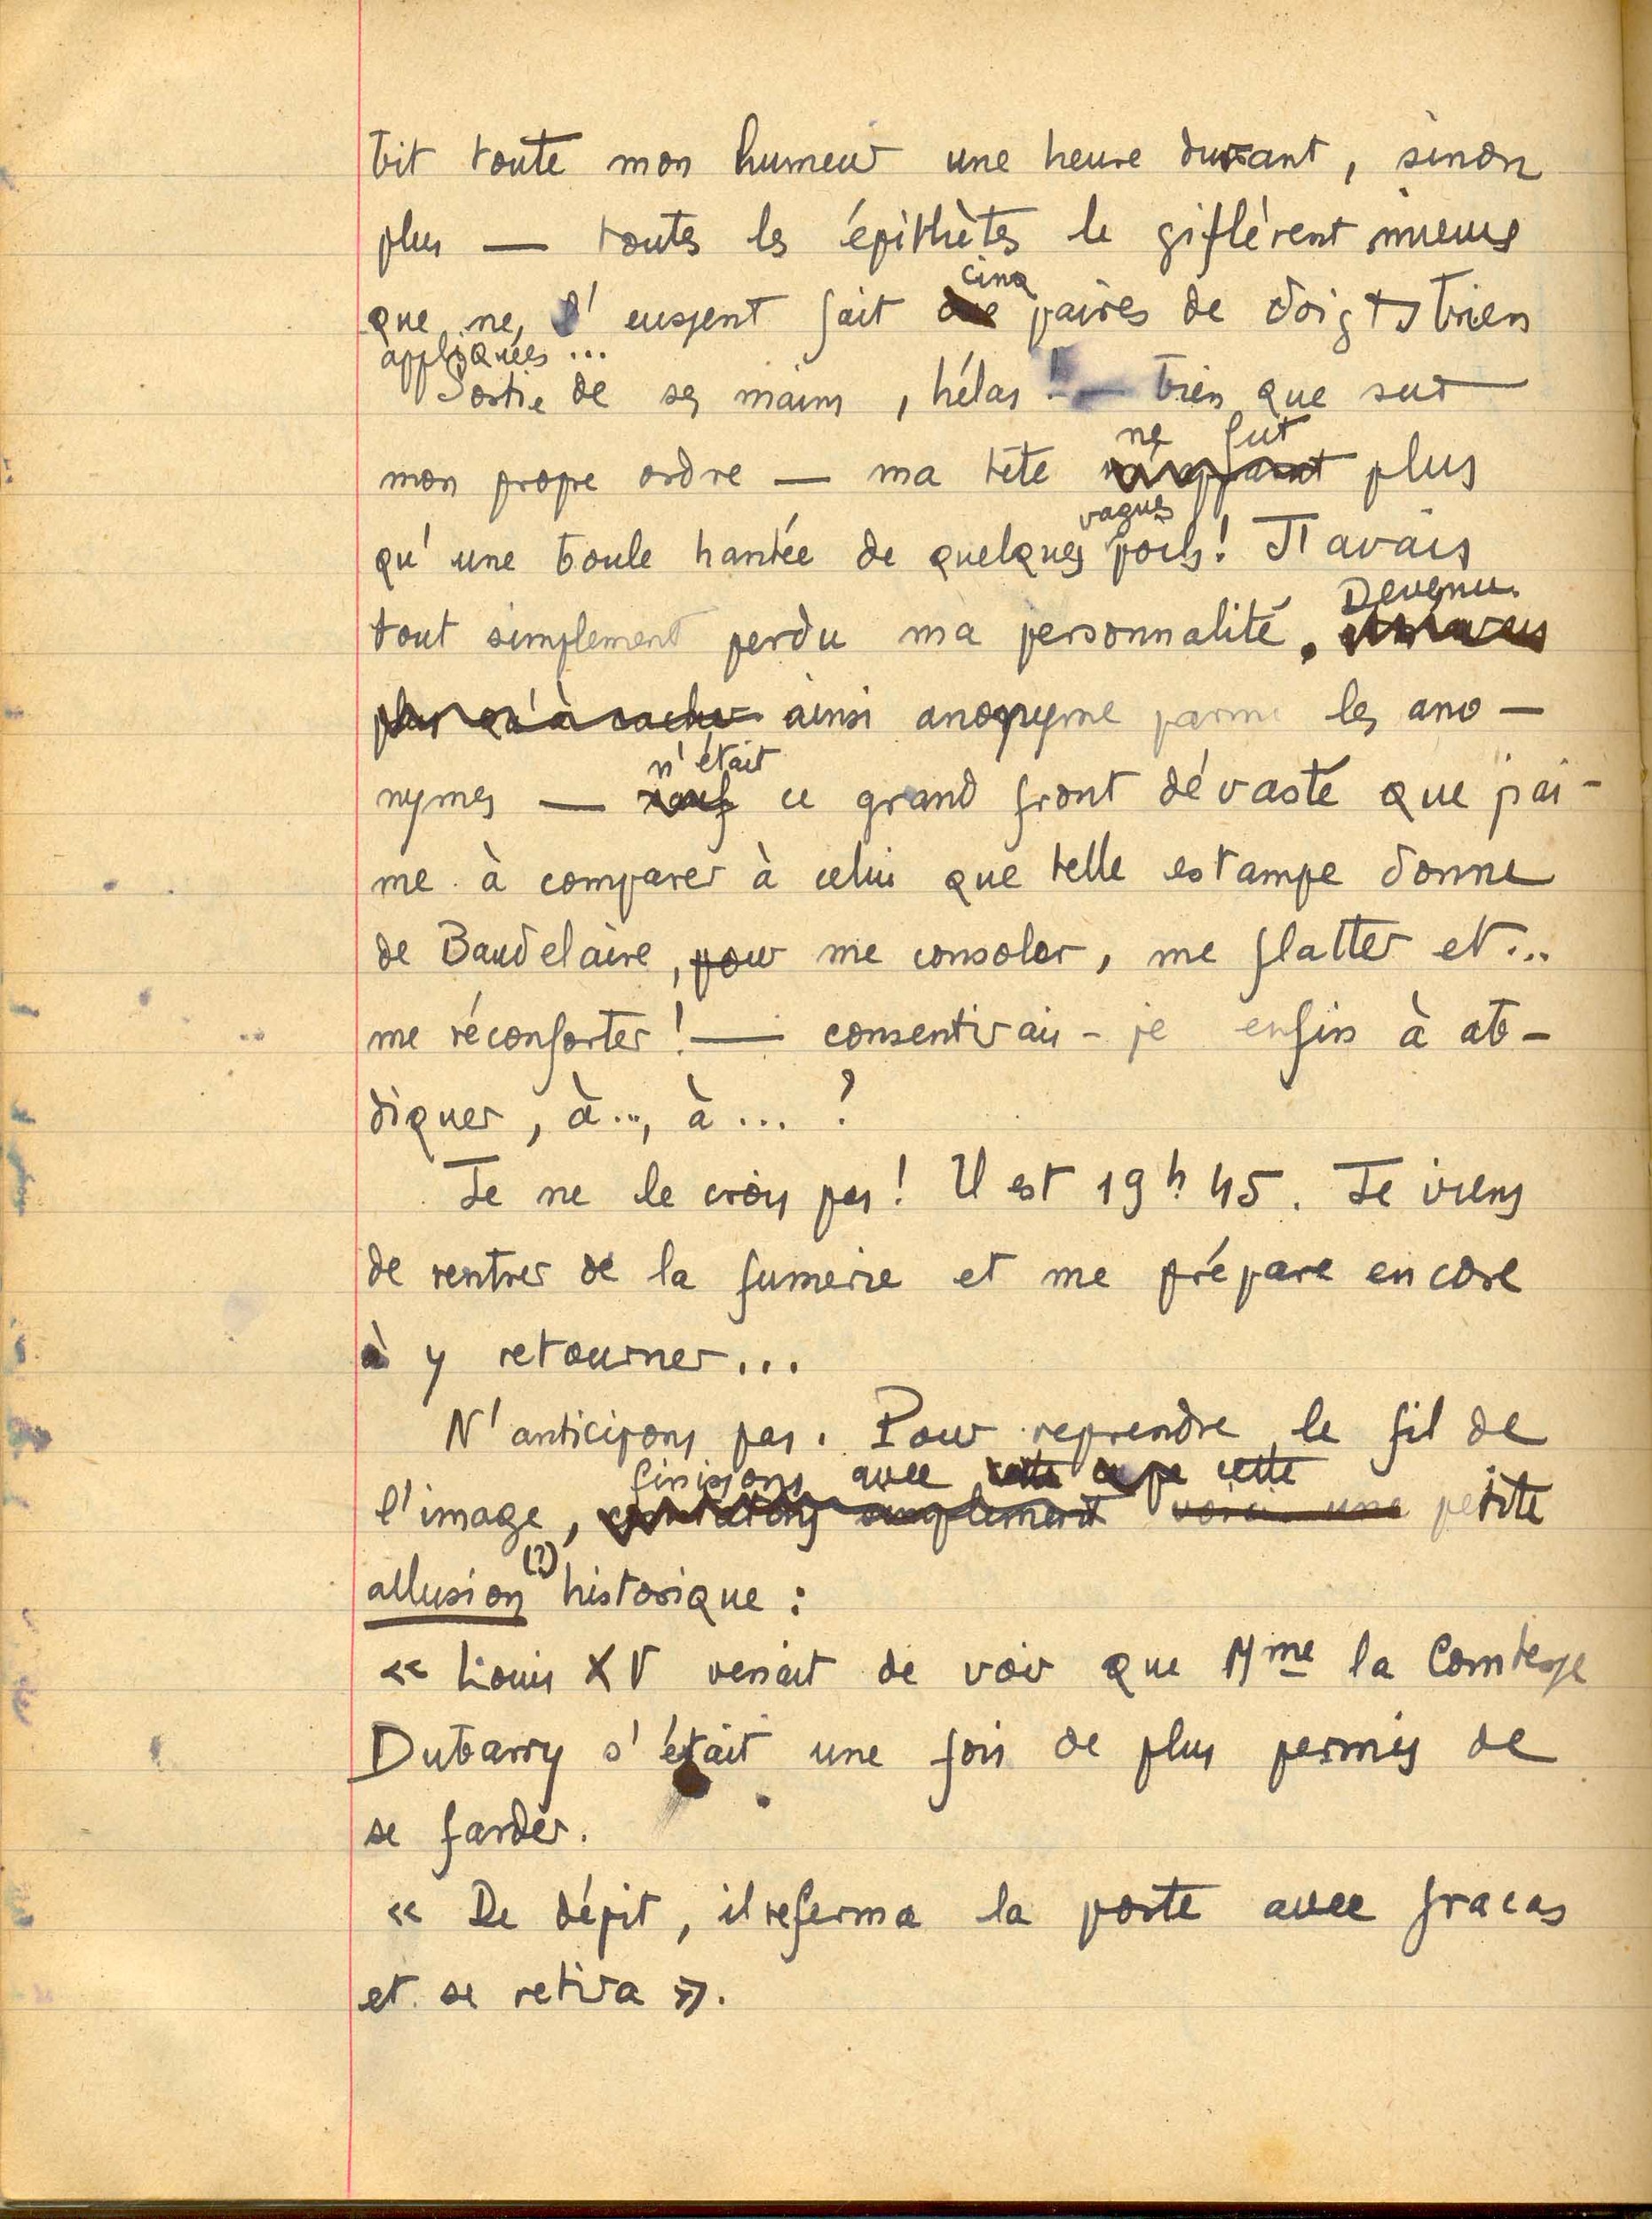 bit toute mon humeur une heure durant, sinon
plus — toutes les épithètes le giflèrent mieux
que ne l'eussent fait cinq paires de doigts bien
appliquées...
Sortie de ses mains, hélas ! — bien que sur
mon propre ordre — ma tête ne fut plus
qu'une boule hantée de quelques vagues poils ! J'avais
tout simplement perdu ma personnalité. Devenu
plus qu'à cacher ainsi anonyme parmi les ano-
nymes — n'était sauf ce grand front dévasté que j'ai-
me à comparer à celui que telle estampe donne
de Baudelaire, pour me consoler, me flatter et...
me réconforter ! — consentirais-je enfin à ab-
diquer, à..., à... ?
Je ne le crois pas ! Il est 19h45. Je viens
de rentrer de la fumerie et me prépare encore
à y retourner...
N'anticipons pas. Pour reprendre le fil de
finissons avec cette
l'image, simplement voici une petite
allusion (?) historique :
« Louis XV venait de voir que Mme la Comtesse
Dubarry s'était une fois de plus permis de
se farder.
« De dépit, il referma la porte avec fracas
et se retira ».